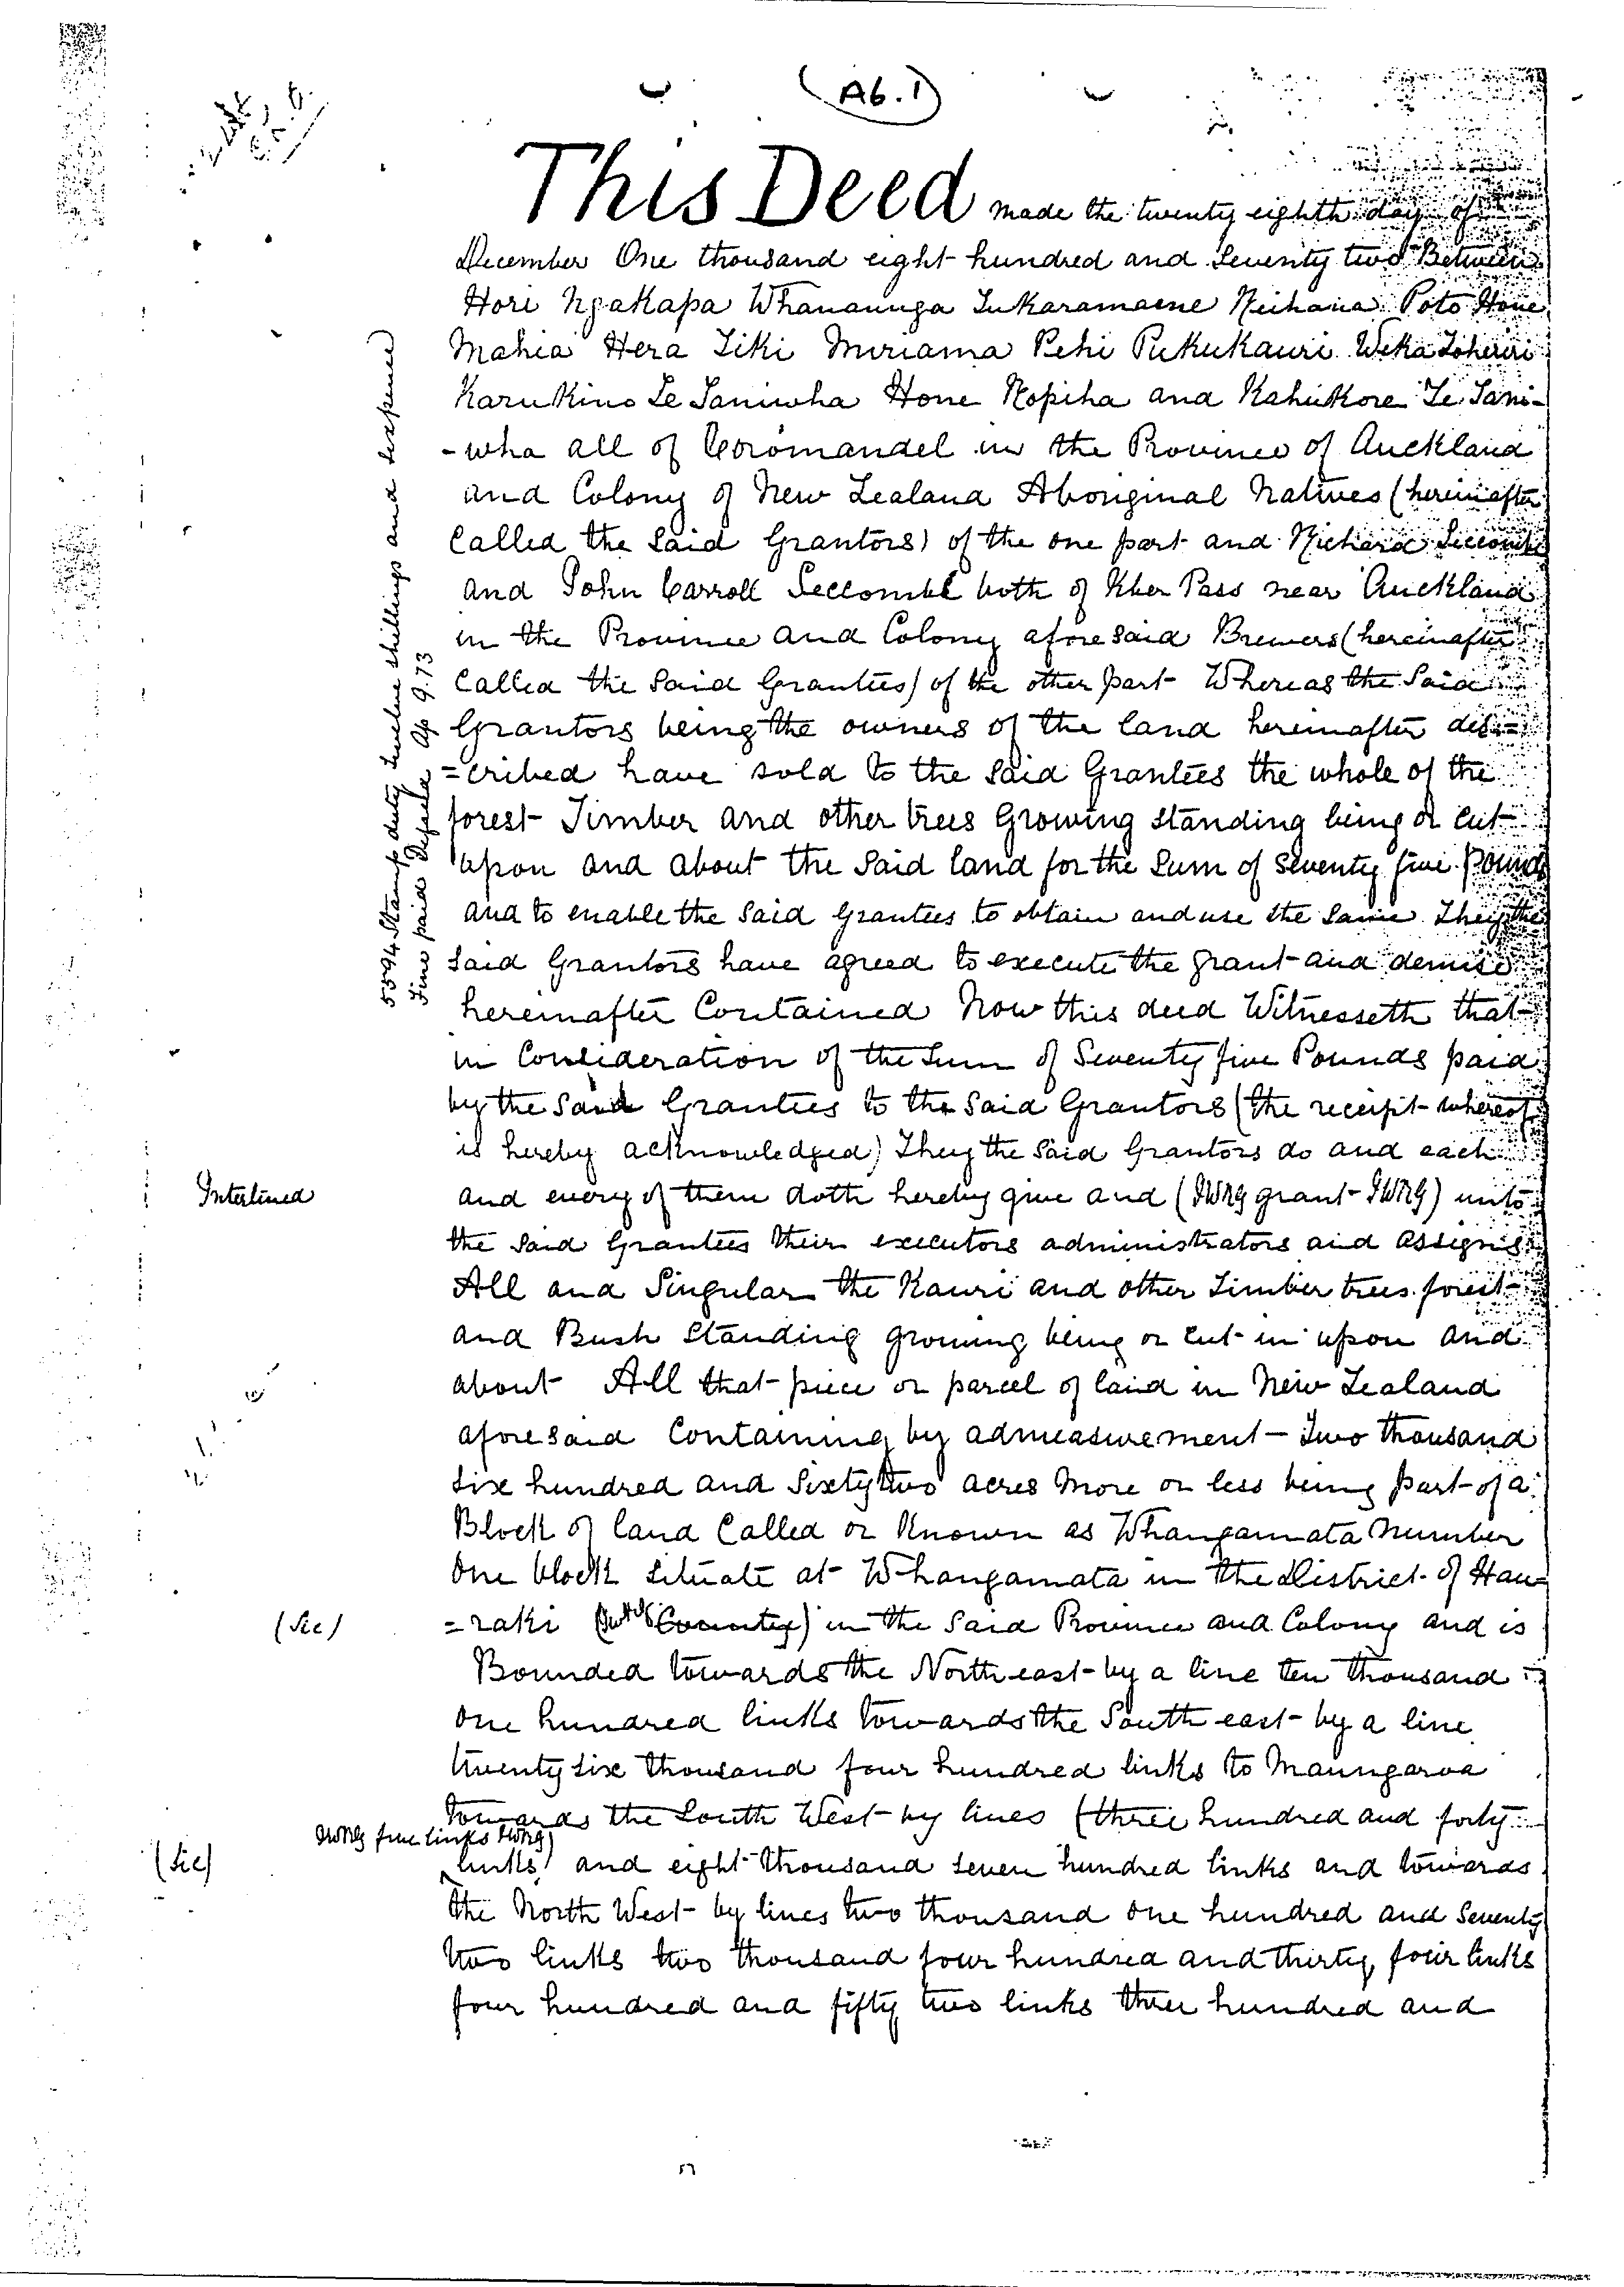 (A6.1)
This Deed made the twenty eighth day of
December One thousand eight hundred and Seventy two Between
Hori Ngakapa Whanaunga Tukaramaene Reihana Poto Hone
Mahia Hera Tiki Miriama Pehi Pukukauri Weka Tohereri
Karukino Te Taniwha Hone Ropiha and Kahukore Te Tani-
-wha all of Coromandel in the Province of Auckland
and Colony of New Zealand Aboriginal Natives (hereinafter
Called the Said Grantors) of the one part and Richard Seccombe
and John Carroll Seccombe both of Khber Pass near Auckland
in the Province and Colony aforesaid Brewers (hereinafter
Called the Said Grantees) of the other part Whereas the Said
Grantors being the owners of the land hereinafter des-
=cribed have sold to the Said Grantees the whole of the
forest Timber and other trees Growing standing being or cut
upon and about the Said land for the Sum of Seventy five pounds
and to enable the Said Grantees to obtain and use the Same They the
Said Grantors have agreed to execute the grant and demise
hereinafter Contained Now this deed Witnesseth that
in Consideration of the Sum of Seventy five Pounds paid
by the Said Grantees to the Said Grantors (the receipt whereof
is hereby acknowledged) They the Said Grantors do and each
Interlined
and every of them doth hereby give and (JWRG grant JWRG) unto
the Said Grantees their executors administrators and assigns
All and Singular the Kauri and other Timber trees forest
and Bush Standing growing being or cut in upon and
about All that piece or parcel of land in New Zealand
aforesaid Containing by admeasurement - Two thousand
Six hundred and Sixty two acres More or less being part of a
Block of land Called or Known as Whangamata Number
One block situate at Whangamata in the District of Hau=
(Sic)
=raki County) in the Said Province and Colony and is
Bounded towards the North east by a line ten thousand
one hundred links towards the South east by a line
twenty six thousand four hundred links to Maungaroa
towards the South West by lines (three hundred and forty
JWRG five links JWRG)
(Sic)
links) and eight thousand seven hundred links and towards
the North West by lines two thousand one hundred and Seventy
two links two thousand four hundred and thirty four links
four hundred and fifty two links three hundred and
5594 Stamp duty twelve shillings and sixpence
Fine paid 9.73